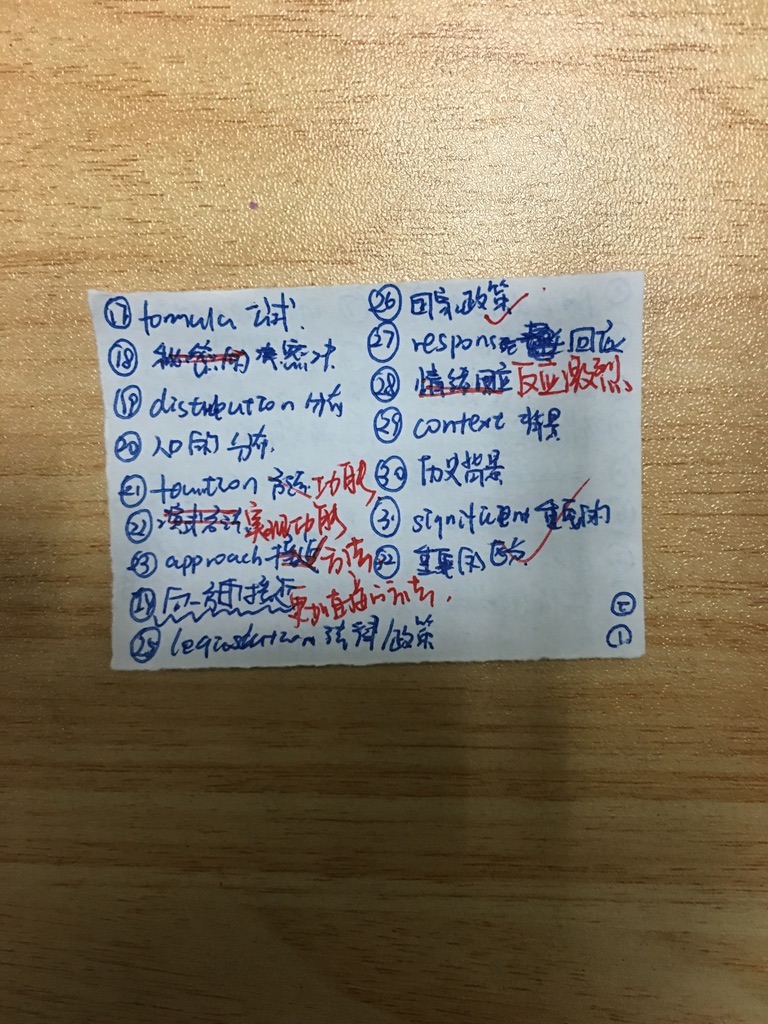 ⑰ formula 公式.
⑱ 秘密的 决密决
⑲ distribution 分布
⑳ 人口的分布.
21 function 方法 功能
22 演式方法 实现功能
23 approach 接近 方法
24 更加直接的方法.
25 legislation 法律/政策
26 国家政策
27 response 回应
28 情绪回应 反应激烈
29 context 背景
30 历史背景
31 significant 重要的
32 重要的
②
①